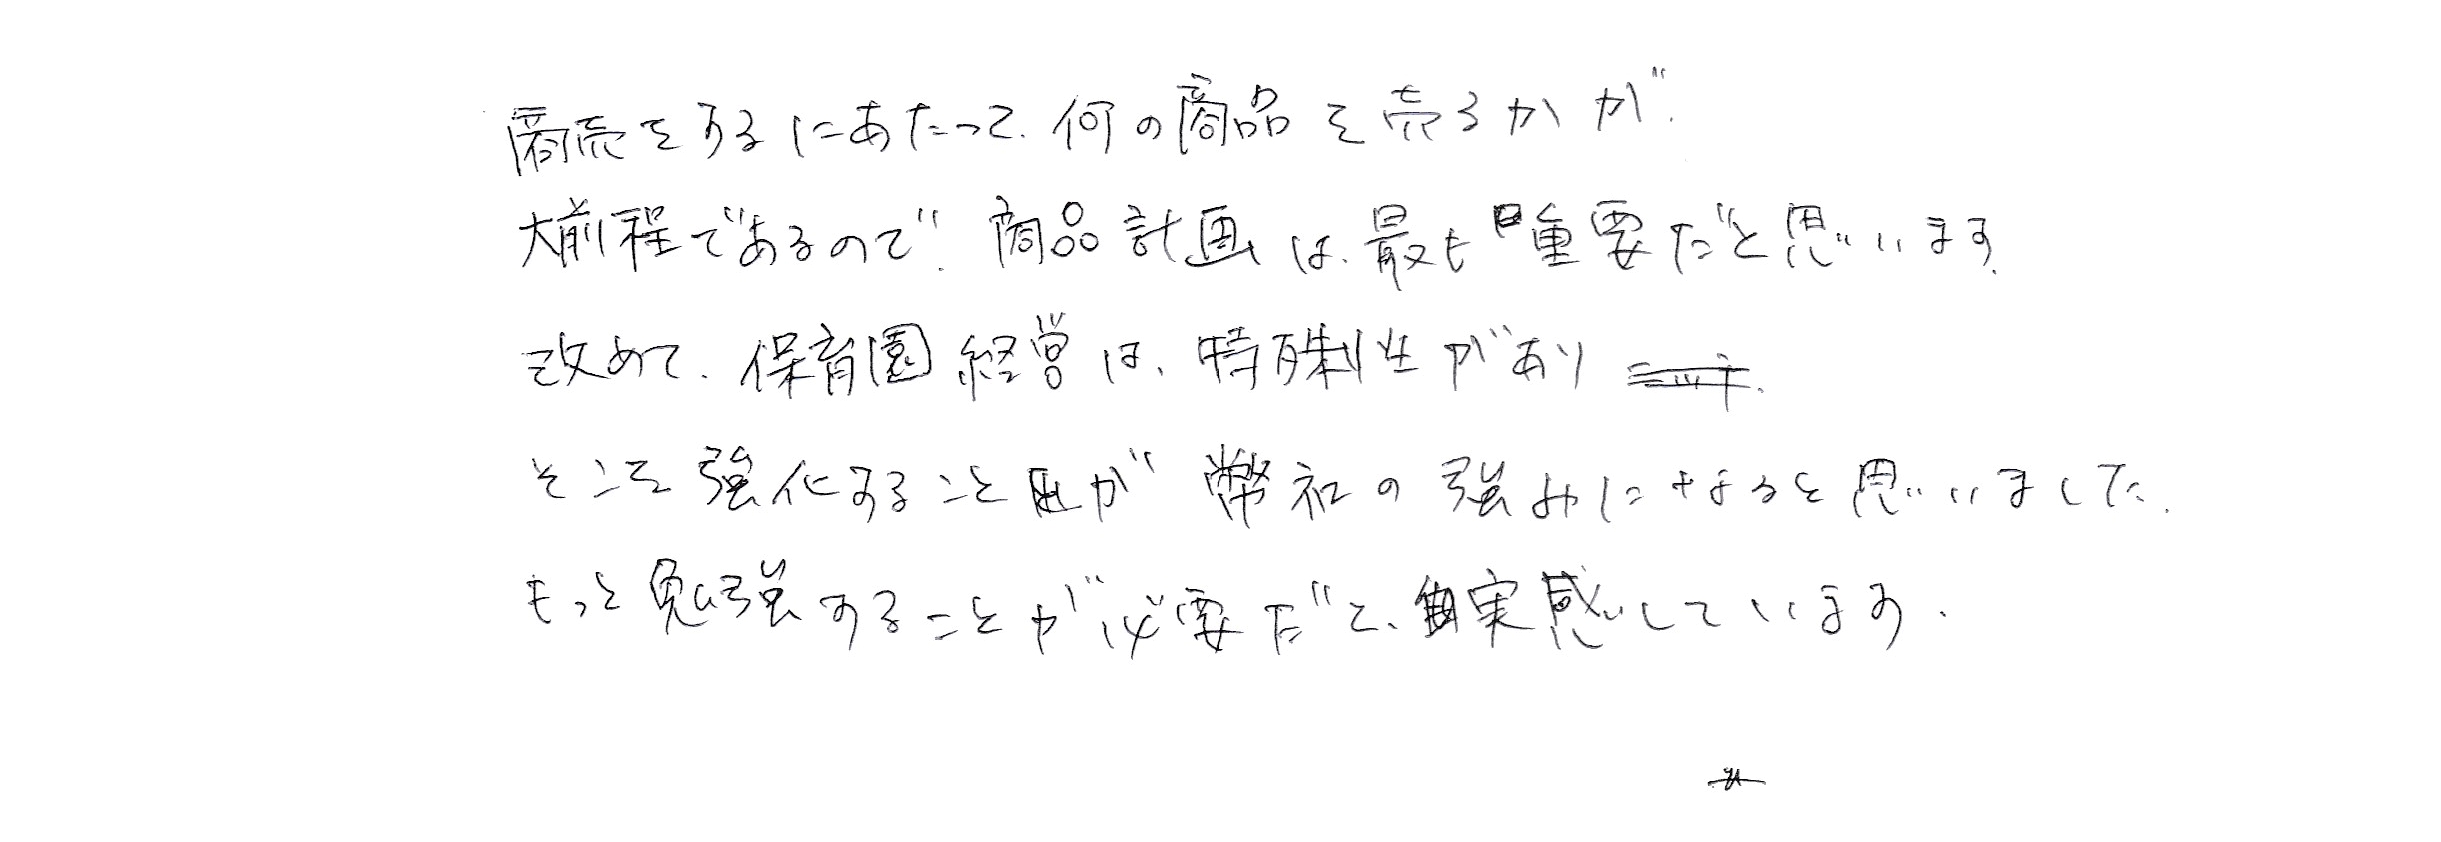 商売をするにあたって、何の商品を売るかが、
大前程であるので、商品計画は、最も重要だと思います。
改めて、保育園経営は、特殊性があり、
そこを強化することが幣社の強みになると思いました。
もっと勉強することが必要だと、実感しています。